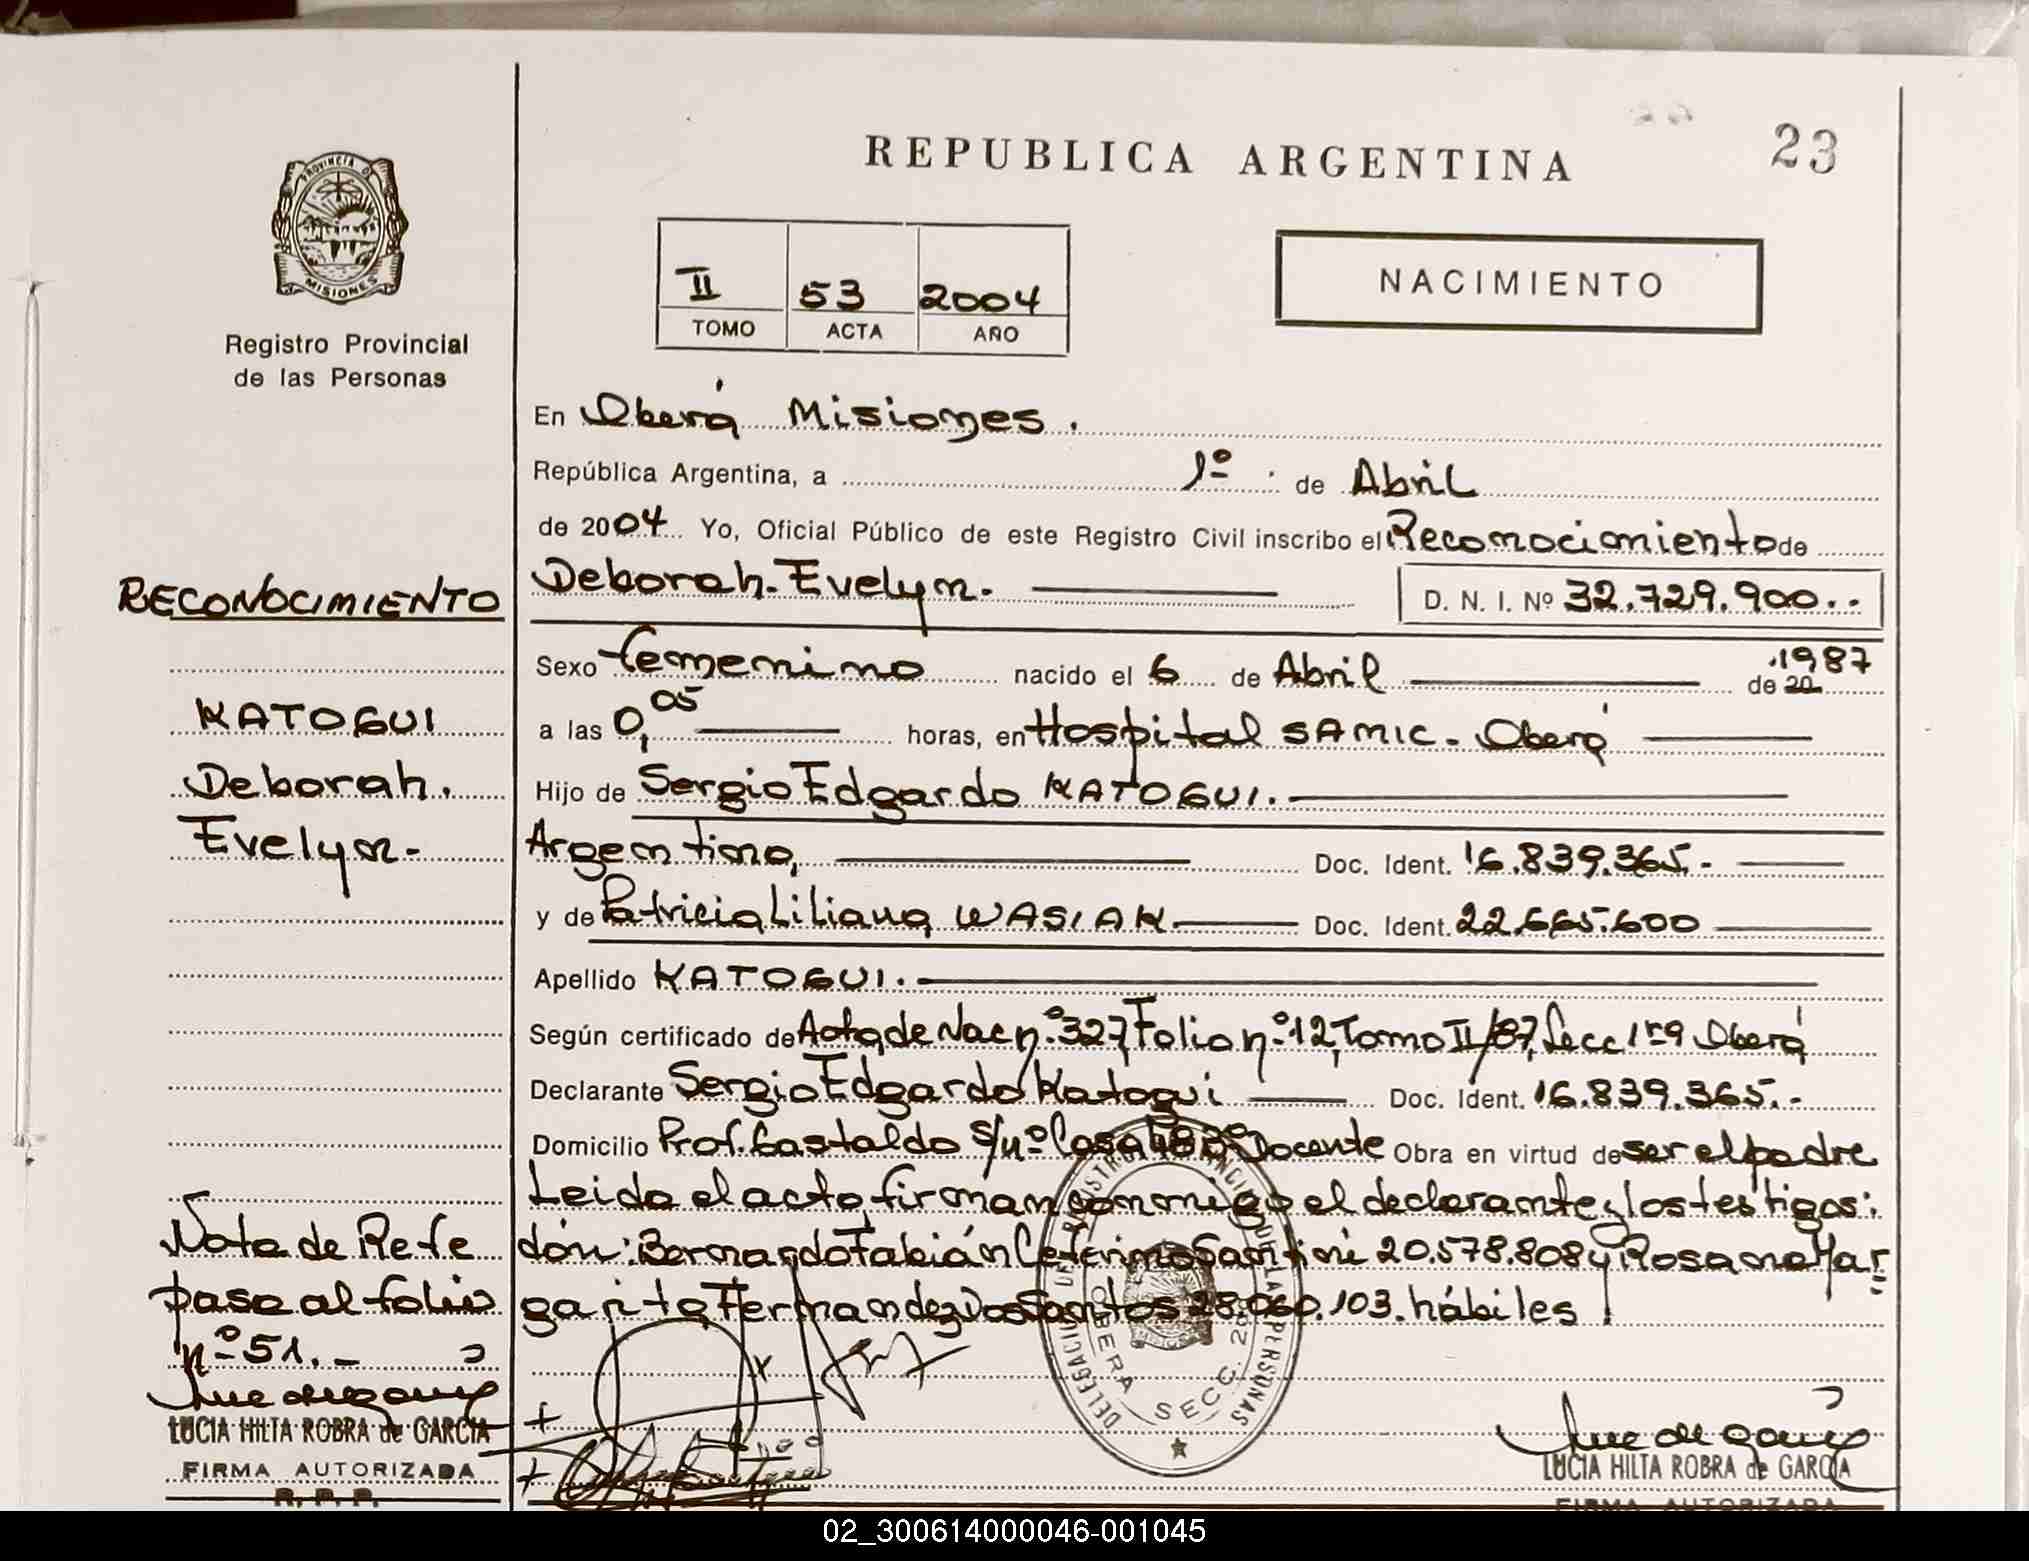 REPUBLICA ARGENTINA
23
PROVINCIA DE
MISIONES
Registro Provincial
de las Personas
II 53 2004
TOMO ACTA AÑO
NACIMIENTO
En Oberá Misiones.
República Argentina, a 1º de Abril
de 2004 Yo, Oficial Público de este Registro Civil inscribo el Reconocimiento de
Deborah Evelyn.
D. N. I. Nº 32.729.900..
Sexo femenino nacido el 6 de Abril de 20 1987
a las 0,05 horas, en Hospital SAMIC. Oberá
Hijo de Sergio Edgardo KATOGUI.
Argentino, Doc. Ident. 16.839.365.-
y de Patricia Liliana WASIAK Doc. Ident. 22.665.600
Apellido KATOGUI.
Según certificado de Acta de Nac nº 327, Folio nº 12, Tomo II/87, Secc 1ra Oberá
Declarante Sergio Edgardo Katogui Doc. Ident. 16.839.365.-
Domicilio Prof. Gastaldo s/nº Casa Docente Obra en virtud de ser el padre
Leida el acto, firman conmigo el declarante y los testigos:
dón: Bernardo Fabián Ceferino Santini 20.578.808 y Rosana Mar
garita Fernandez Dos Santos 28.060.103. hábiles
RECONOCIMIENTO
KATOGUI
Deborah.
Evelyn-
Nota de Refe
pasa al folio
nº 51.-
LUCIA HILTA ROBRA de GARCIA
FIRMA AUTORIZADA
R. P. P.
DELEGACION REGISTRO PROVINCIAL DE LAS PERSONAS
OBERA SECC.
LUCIA HILTA ROBRA de GARCIA
FIRMA AUTORIZADA
02_300614000046-001045